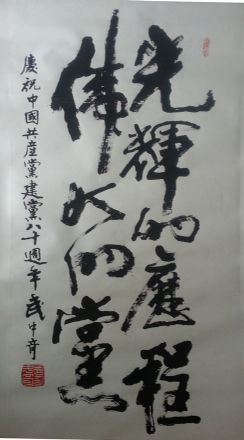 光輝的歷程
偉大的黨
慶祝中國共産黨建黨八十週年 武中奇